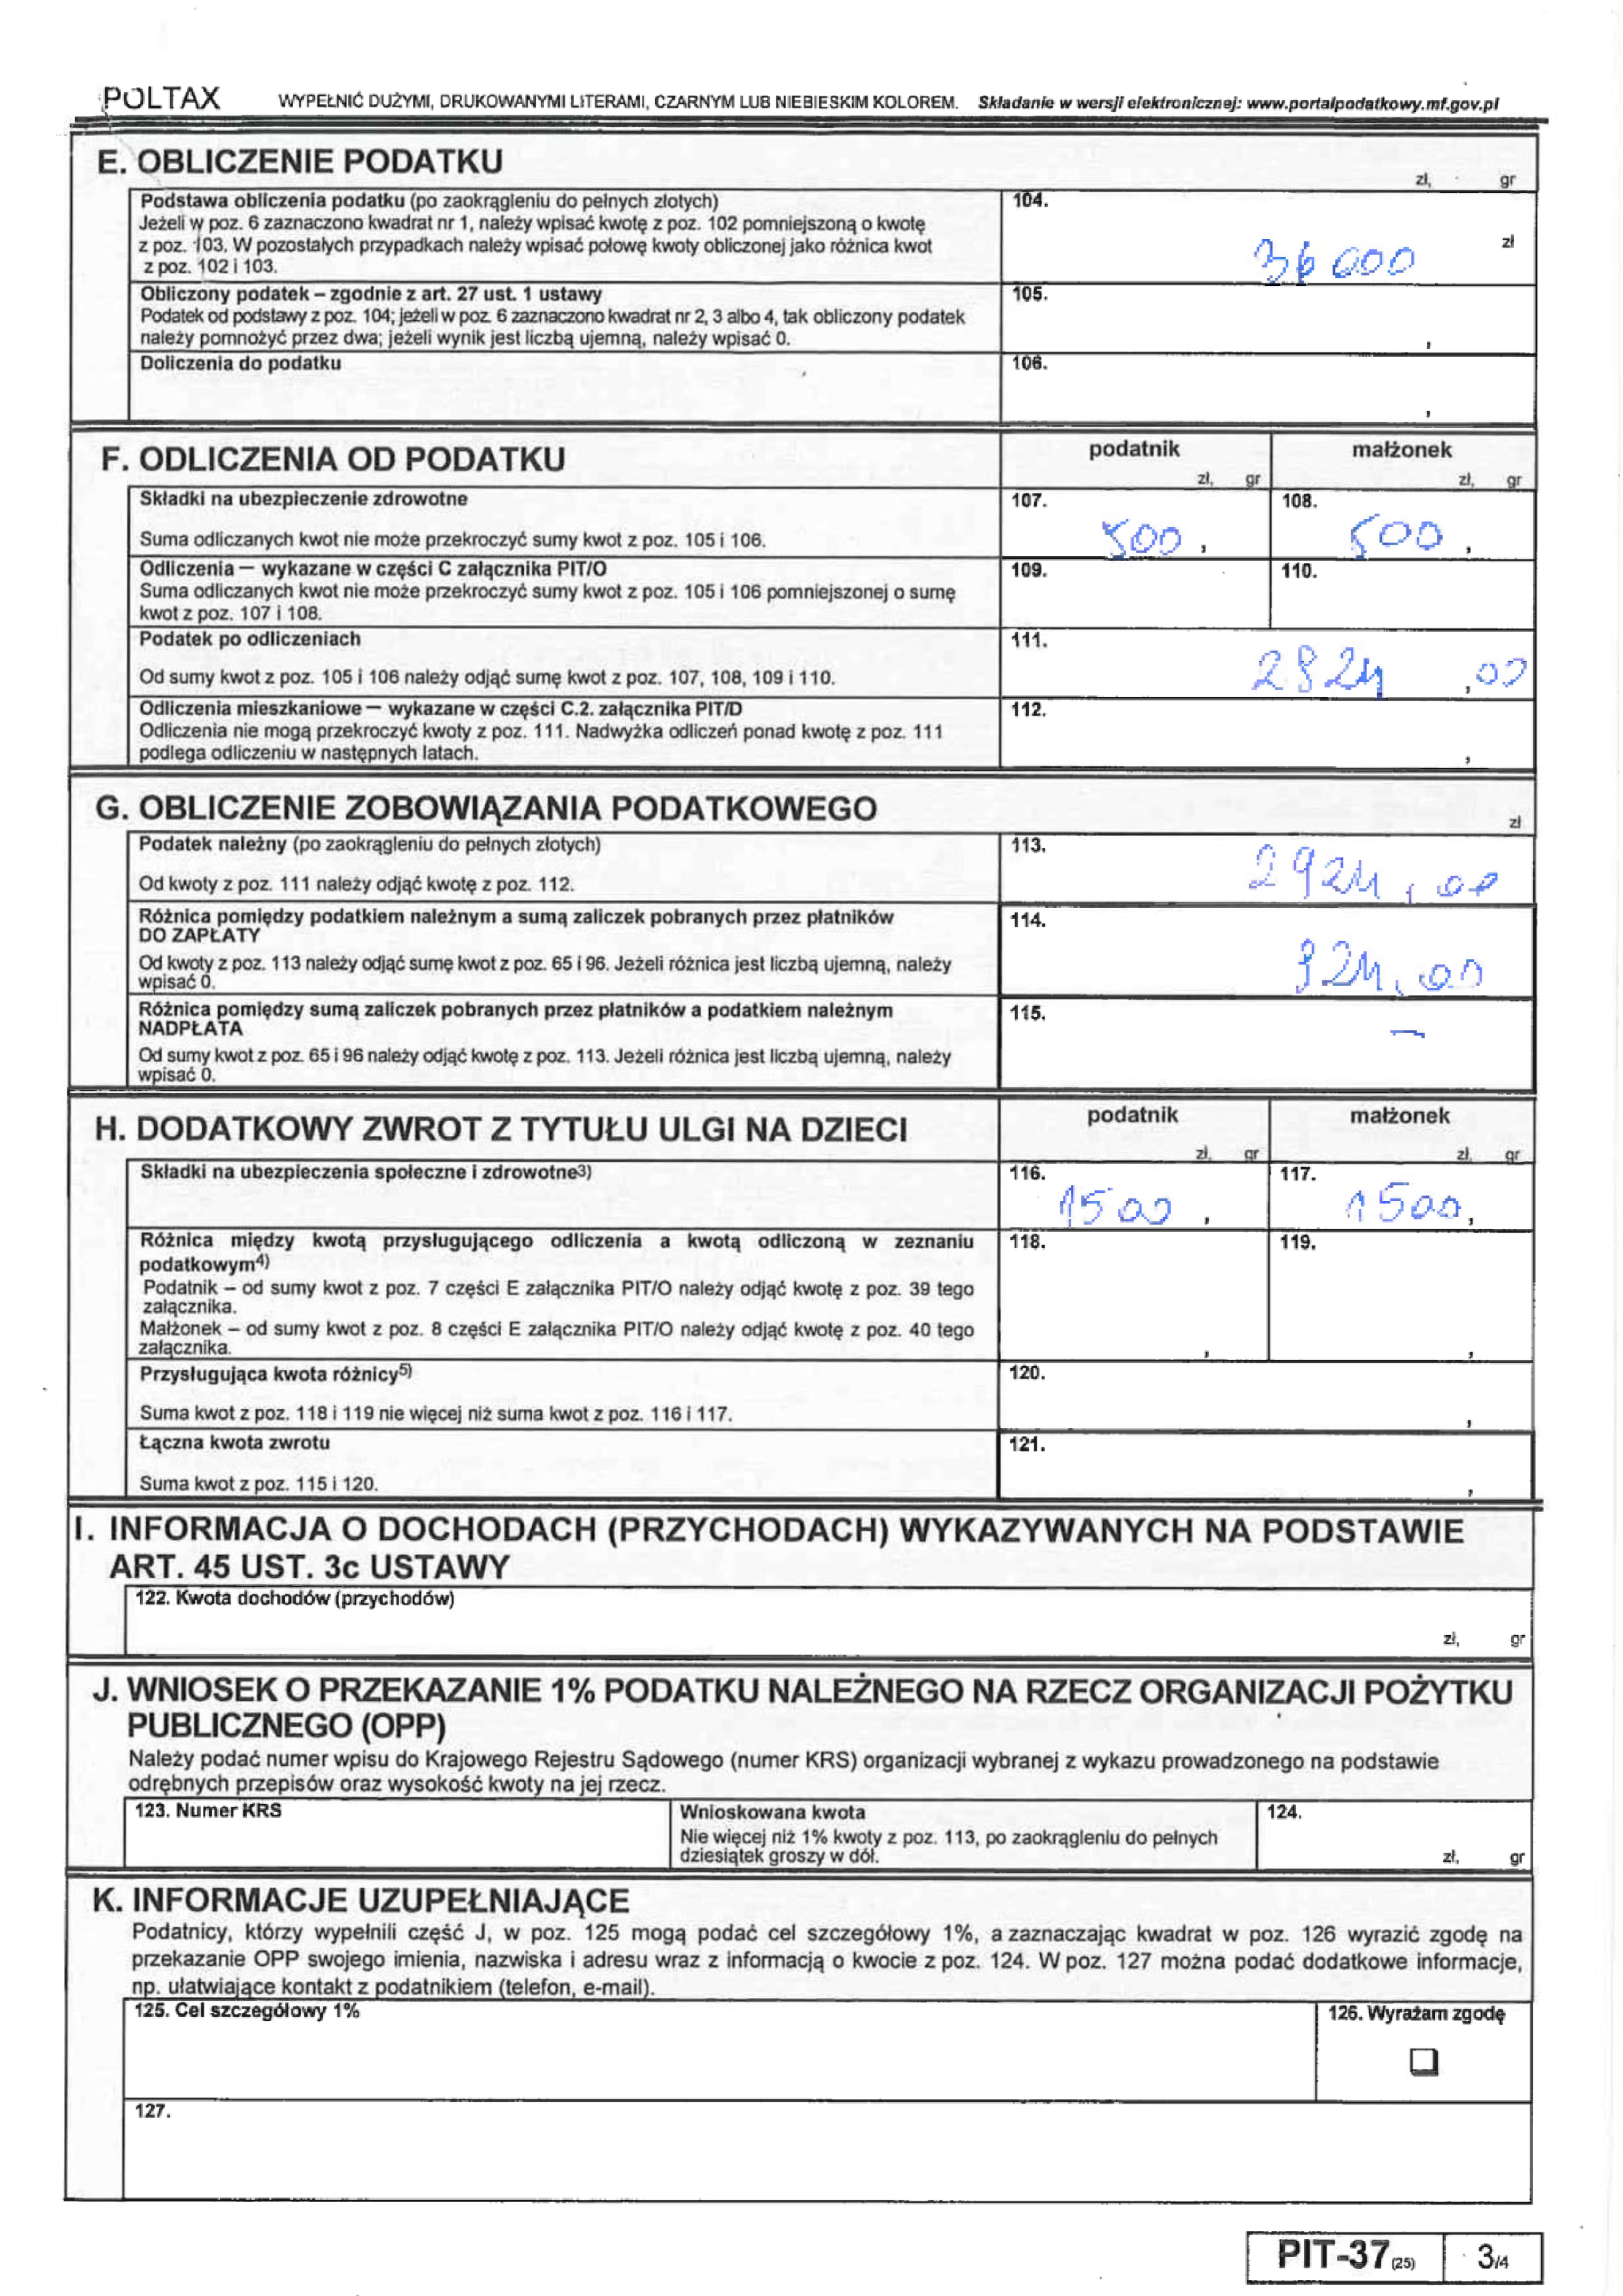 POLTAX WYPEŁNIĆ DUŻYMI, DRUKOWANYMI LITERAMI, CZARNYM LUB NIEBIESKIM KOLOREM. Składanie w wersji elektronicznej: www.portalpodatkowy.mf.gov.pl
E. OBLICZENIE PODATKU
zł, gr
Podstawa obliczenia podatku (po zaokrągleniu do pełnych złotych) 104.
Jeżeli w poz. 6 zaznaczono kwadrat nr 1, należy wpisać kwotę z poz. 102 pomniejszoną o kwotę
z poz. 103. W pozostałych przypadkach należy wpisać połowę kwoty obliczonej jako różnica kwot zł
z poz. 102 i 103. 36 000
Obliczony podatek – zgodnie z art. 27 ust. 1 ustawy 105.
Podatek od podstawy z poz. 104; jeżeli w poz. 6 zaznaczono kwadrat nr 2, 3 albo 4, tak obliczony podatek
należy pomnożyć przez dwa; jeżeli wynik jest liczbą ujemną, należy wpisać 0. ,
Doliczenia do podatku 106.
,
F. ODLICZENIA OD PODATKU podatnik małżonek
zł, gr zł, gr
Składki na ubezpieczenie zdrowotne 107. 108.
Suma odliczanych kwot nie może przekroczyć sumy kwot z poz. 105 i 106. 500 , 500 ,
Odliczenia – wykazane w części C załącznika PIT/O 109. 110.
Suma odliczanych kwot nie może przekroczyć sumy kwot z poz. 105 i 106 pomniejszonej o sumę
kwot z poz. 107 i 108.
Podatek po odliczeniach 111.
Od sumy kwot z poz. 105 i 106 należy odjąć sumę kwot z poz. 107, 108, 109 i 110. 2824 ,00
Odliczenia mieszkaniowe – wykazane w części C.2. załącznika PIT/D 112.
Odliczenia nie mogą przekroczyć kwoty z poz. 111. Nadwyżka odliczeń ponad kwotę z poz. 111
podlega odliczeniu w następnych latach. ,
G. OBLICZENIE ZOBOWIĄZANIA PODATKOWEGO
zł
Podatek należny (po zaokrągleniu do pełnych złotych) 113.
Od kwoty z poz. 111 należy odjąć kwotę z poz. 112. 2924,00
Różnica pomiędzy podatkiem należnym a sumą zaliczek pobranych przez płatników 114.
DO ZAPŁATY
Od kwoty z poz. 113 należy odjąć sumę kwot z poz. 65 i 96. Jeżeli różnica jest liczbą ujemną, należy 924,00
wpisać 0.
Różnica pomiędzy sumą zaliczek pobranych przez płatników a podatkiem należnym 115.
NADPŁATA –
Od sumy kwot z poz. 65 i 96 należy odjąć kwotę z poz. 113. Jeżeli różnica jest liczbą ujemną, należy
wpisać 0.
H. DODATKOWY ZWROT Z TYTUŁU ULGI NA DZIECI podatnik małżonek
zł, gr zł, gr
Składki na ubezpieczenia społeczne i zdrowotne3) 116. 117.
1500 , 1500,
Różnica między kwotą przysługującego odliczenia a kwotą odliczoną w zeznaniu 118. 119.
podatkowym4)
Podatnik – od sumy kwot z poz. 7 części E załącznika PIT/O należy odjąć kwotę z poz. 39 tego
załącznika.
Małżonek – od sumy kwot z poz. 8 części E załącznika PIT/O należy odjąć kwotę z poz. 40 tego
załącznika. , ,
Przysługująca kwota różnicy5) 120.
Suma kwot z poz. 118 i 119 nie więcej niż suma kwot z poz. 116 i 117. ,
Łączna kwota zwrotu 121.
Suma kwot z poz. 115 i 120. ,
I. INFORMACJA O DOCHODACH (PRZYCHODACH) WYKAZYWANYCH NA PODSTAWIE
ART. 45 UST. 3c USTAWY
122. Kwota dochodów (przychodów)
zł, gr
J. WNIOSEK O PRZEKAZANIE 1% PODATKU NALEŻNEGO NA RZECZ ORGANIZACJI POŻYTKU
PUBLICZNEGO (OPP)
Należy podać numer wpisu do Krajowego Rejestru Sądowego (numer KRS) organizacji wybranej z wykazu prowadzonego na podstawie
odrębnych przepisów oraz wysokość kwoty na jej rzecz.
123. Numer KRS Wnioskowana kwota 124.
Nie więcej niż 1% kwoty z poz. 113, po zaokrągleniu do pełnych
dziesiątek groszy w dół. zł, gr
K. INFORMACJE UZUPEŁNIAJĄCE
Podatnicy, którzy wypełnili część J, w poz. 125 mogą podać cel szczegółowy 1%, a zaznaczając kwadrat w poz. 126 wyrazić zgodę na
przekazanie OPP swojego imienia, nazwiska i adresu wraz z informacją o kwocie z poz. 124. W poz. 127 można podać dodatkowe informacje,
np. ułatwiające kontakt z podatnikiem (telefon, e-mail).
125. Cel szczegółowy 1% 126. Wyrażam zgodę
127.
PIT-37 (25) 3/4